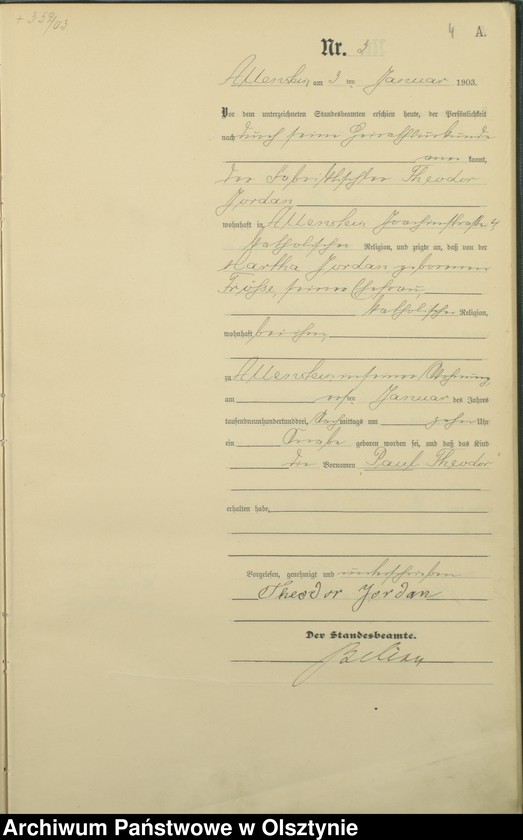 + 332/03
4 A.
Nr. 3
Allenstein, am 3 ten Januar 1903.
Vor dem unterzeichneten Standesbeamten erschien heute, der Persönlichkeit
nach durch seine Heirathsurkunde
aner kannt,
der Theodor
Jordan
wohnhaft in Allenstein Joachimstraße 4
katholischer Religion, und zeigte an, daß von der
Martha Jordan geborenen
seiner Ehefrau,
katholischer Religion,
wohnhaft bei ihm,
zu Allenstein in seiner Wohnung,
am ersten Januar des Jahres
tausendneunhundertunddrei, Nachmittags um zehn Uhr
ein Knabe geboren worden sei, und daß das Kind
die Vornamen Paul Theodor
erhalten habe.
Vorgelesen, genehmigt und unterschrieben
Theodor Jordan
Der Standesbeamte.
Archiwum Państwowe w Olsztynie